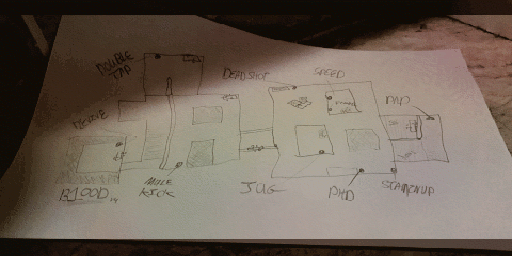 DOUBLE
TAP
DEADSHOT
SPEED
PAP
MULE
KICK
JUG
PHD
STAMINUP